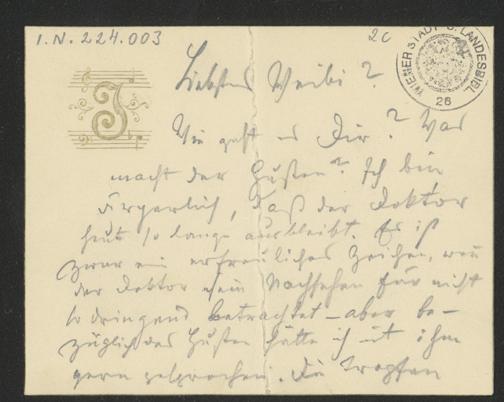 I.N. 224.003
20
WIENER STADT- U. LANDESBIBL.
26
J
Liebstes Weibi?
Wie geht es Dir? Was
macht der Husten? Ich bin
ärgerlich, daß der Doktor
heute so lange ausbleibt. Es ist
zwar ein erfreuliches Zeichen, wenn
der Doktor sein Nachsehen für nicht
so dringend betrachtet – aber be-
züglich des Husten hätte ich mit ihm
gern gesprochen. Die Tropfen